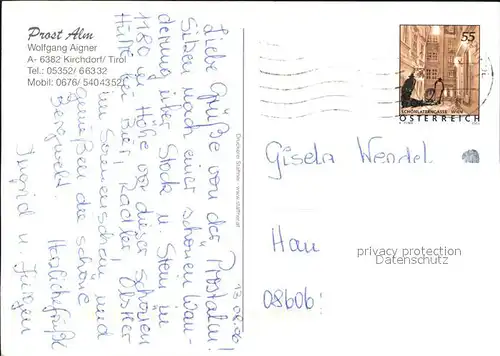 Prost Alm
Wolfgang Aigner
A- 6382 Kirchdorf/ Tirol
Tel.: 05352/ 66332
Mobil: 0676/ 54043521
13.08.06
Liebe Grüße von der Prostalm!
Sitzen nach einer schönen Wan-
derung über Stock u. Stein in
1180 m Höhe vor dieser schönen
Hütte bei Bier, Radler, Obstler
im Sonnenschein und
genießen die schöne
Bergwelt.
Herzliche Grüße
Ingrid u. Jürgen
55
SCHÖNLATERNGASSE WIEN
ÖSTERREICH
Gisela Wendel
Hau
08606:
privacy protection
Datenschutz